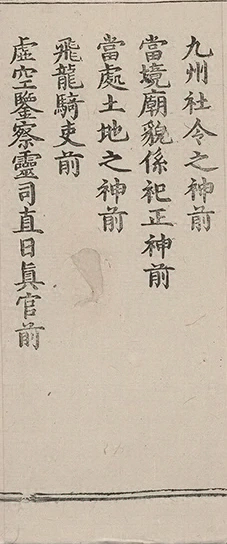 九州社令之神前
當境廟貌係祀正神前
當處土地之神前
飛龍騎吏前
虛空鑒察靈司直日眞官前